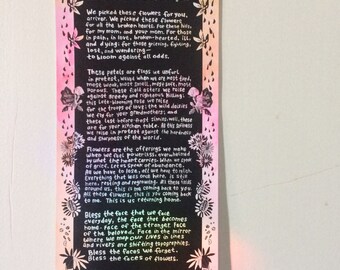 We picked these flowers for you,
arrivor. We picked these flowers
for all the broken hearts. For those
for my mom, and your mom. For those
in pain, in love, broken-hearted, ill,
and dying; for those grieving, fighting,
lost, and wandering—
to bloom against all odds.
These petals are flags we unfurl
in protest,
These
raise against greedy and righteous killing;
this late-blooming rose we
for the troops of love; the wild daisies
we fly for your grandmothers; and
these last before-frost
are for your kitchen table. All this softness
we raise in protest against the hardness
and sharpness of the world.
Flowers are the offerings we make
when we feel powerless, overwhelmed
by what the heart carries. When we
of grief, love speak of abundance.
All we have to lose, all we have to
Everything that was once here, is still
here, resting and regenerating. All these
around us, this is you coming back to you.
All these flowers, this is you coming back
to me. This is us returning home.
Bless the face that we face
everyday, the face that becomes
home. Face of the stranger, face
of the beloved. Face in the mirror
where we map our lives in lines
and rivers and shifting topographies.
Bless the faces we forget.
Bless the faces of flowers.